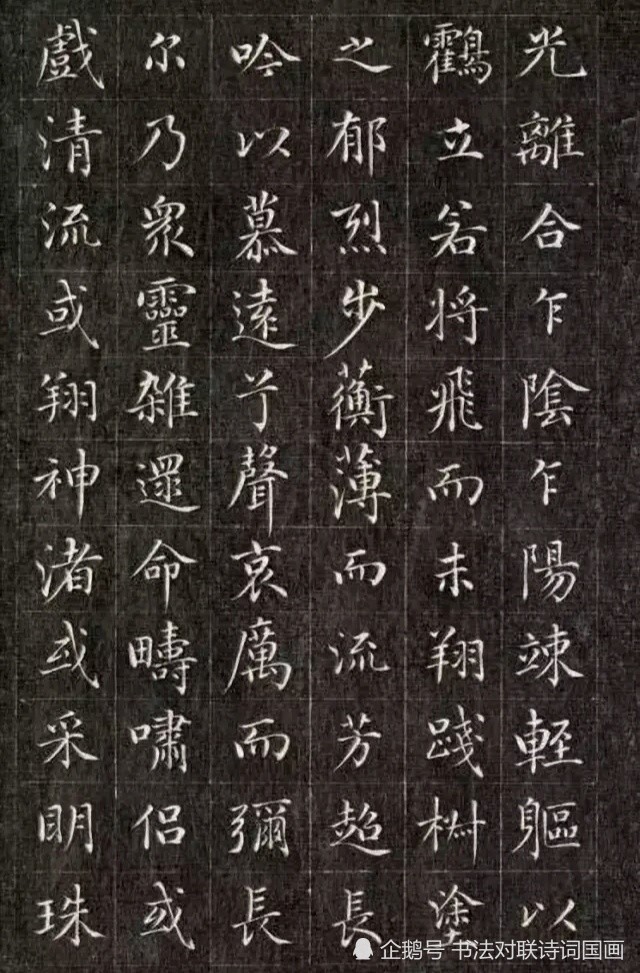 光離合乍陰乍陽竦輕軀以
鸖立若將飛而未翔踐椒塗
之郁烈步蘅薄而流芳超長
吟以慕遠兮聲哀厲而彌長
尔乃衆靈雜遝命疇嘯侶或
戲清流或翔神渚或采明珠
企鹅号 书法对联诗词国画